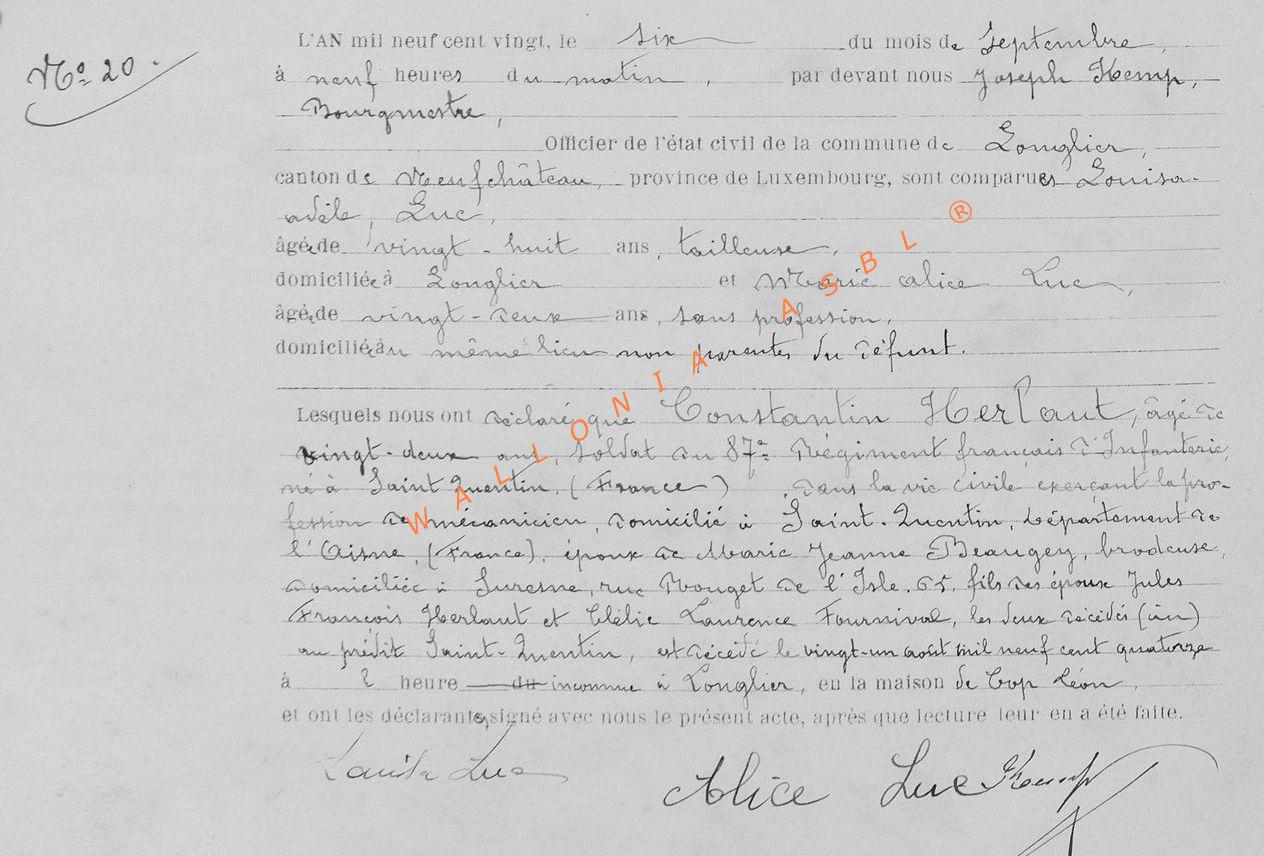 Nº 20.
L'AN mil neuf cent vingt, le six du mois de Septembre,
à neuf heures du matin, par devant nous Joseph Kemp,
Bourgmestre,
Officier de l'état civil de la commune de Longlier,
canton de Neufchâteau, province de Luxembourg, sont comparues Louisa-
adèle, Luc,
âgée de vingt-huit ans, tailleuse,
domiciliée à Longlier et Marie alice Luc,
âgée de vingt-deux ans, sans profession,
domiciliée au même lieu non parentes du défunt.
Lesquels nous ont déclaré que Constantin Herlaut, âgé de
vingt-deux ans, soldat au 87e Régiment français d'Infanterie,
né à Saint Quentin, (France) dans la vie civile exerçant la pro-
fession de mécanicien, domicilié à Saint-Quentin, département de
l'Aisne, (France), époux de Marie Jeanne Beaugey, brodeuse,
domiciliée à Suresne, rue Rouget de l'Isle. 65, fils des époux Jules
François Herlaut et Clélie Laurence Fournival, les deux décédés (àu)
au prédit Saint-Quentin, est décédé le vingt-un août mil neuf cent quatorze
à l heure du inconnue à Longlier, en la maison de Cop Léon,
et ont les déclarantes, signé avec nous le présent acte, après que lecture leur en a été faite.
Louisa Luc
Alice Luc Kemp
WALLONIA ASBL ®